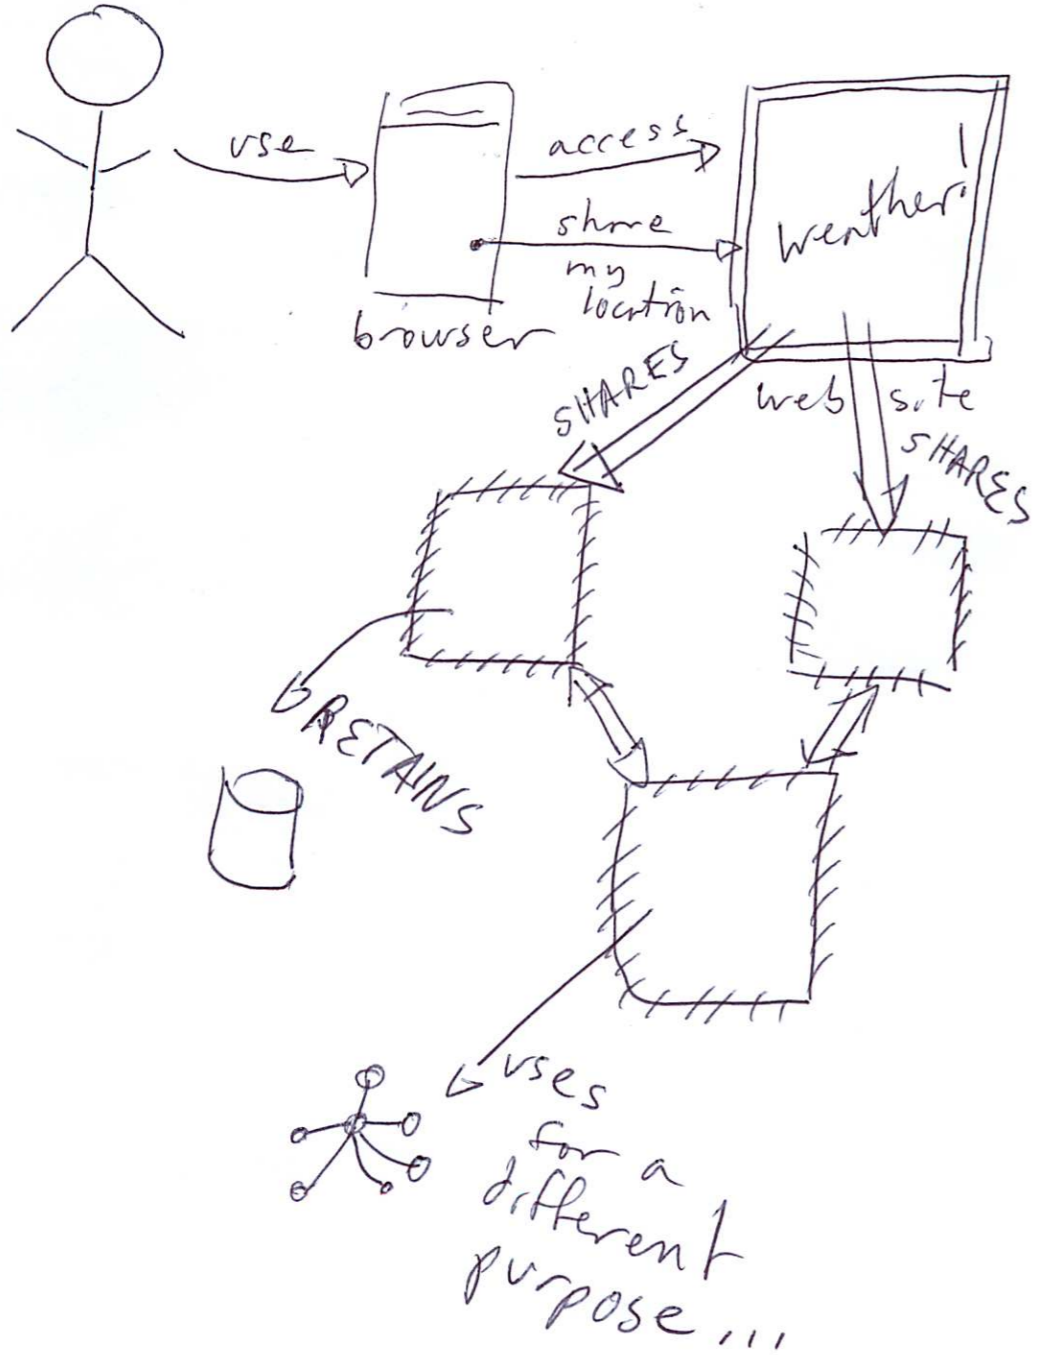 use
access
share
my
location
weather!
browser
web site
SHARES
SHARES
RETAINS
uses
for a
different
purpose...